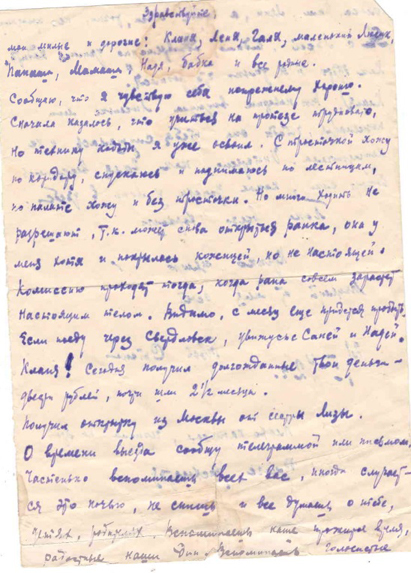 Здравствуйте,
мои милые и дорогие: Клава, Леня, Галя, маленький
Папаша, Мамаша, Надя, бабка и все родные.
Сообщаю, что я чувствую себя попрежнему хорошо.
Сначала казалось, что учиться на протезе трудновато,
но технику ходьбы я уже освоил. С тросточкой хожу
по коридору, спускаюсь и поднимаюсь по лестницам,
по палате хожу и без тросточки. Но много ходить не
разрешают, т.к. может снова открыться ранка, она у
меня хотя и покрылась кожицей но не настоящей.
Комиссию проходят тогда, когда рана совсем зарастет
настоящим телом. Видимо, с месяц еще придется пробыть.
Если поеду через Свердловск, увижусь с Саней и Надей.
Клава! Сегодня получил долгожданные твои деньги-
двести рублей, шли 2½ месяца.
Получил открытку из Москвы от сестры Лизы.
О времени выезда сообщу телеграммой или письмом.
Частенько вспоминаешь всех вас, иногда случает-
ся это ночью, не спишь и все думаешь о тебе,
детях, родителях. Вспоминаешь наше прожитое время,
радостные наши дни. Вспоминаешь